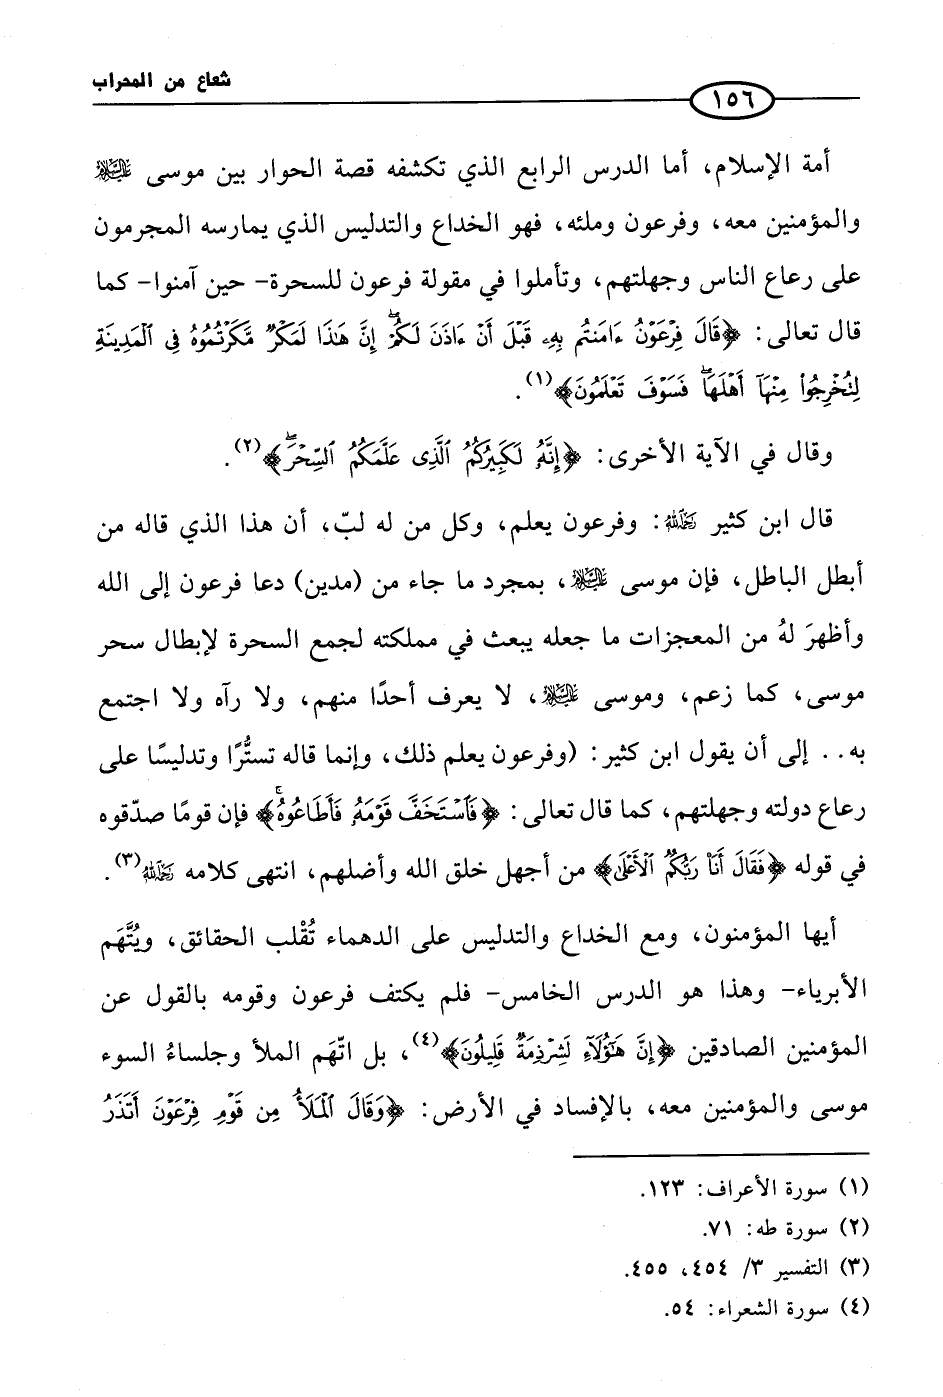 شعاع من المحراب
١٥٦
أمة الإسلام، أما الدرس الرابع الذي تكشفه قصة الحوار بين موسى عليه السلام
والمؤمنين معه، وفرعون وملئه، فهو الخداع والتدليس الذي يمارسه المجرمون
على رعاع الناس وجهلتهم، وتأملوا في مقولة فرعون للسحرة- حين آمنوا- كما
قال تعالى: ﴿قَالَ فِرْعَوْنُ ءَامَنتُم بِهِۦ قَبْلَ أَنْ ءَاذَنَ لَكُمْۖ إِنَّ هَٰذَا لَمَكْرٌ مَّكَرْتُمُوهُ فِى ٱلْمَدِينَةِ
لِتُخْرِجُوا۟ مِنْهَآ أَهْلَهَاۖ فَسَوْفَ تَعْلَمُونَ﴾(١).
وقال في الآية الأخرى: ﴿إِنَّهُۥ لَكَبِيرُكُمُ ٱلَّذِى عَلَّمَكُمُ ٱلسِّحْرَۖ﴾(٢).
قال ابن كثير رحمه الله: وفرعون يعلم، وكل من له لبّ، أن هذا الذي قاله من
أبطل الباطل، فإن موسى عليه السلام، بمجرد ما جاء من (مدين) دعا فرعون إلى الله
وأظهرَ لهُ من المعجزات ما جعله يبعث في مملكته لجمع السحرة لإبطال سحر
موسى، كما زعم، وموسى عليه السلام، لا يعرف أحدًا منهم، ولا رآه ولا اجتمع
به.. إلى أن يقول ابن كثير: (وفرعون يعلم ذلك، وإنما قاله تستُّرًا وتدليسًا على
رعاع دولته وجهلتهم، كما قال تعالى: ﴿فَٱسْتَخَفَّ قَوْمَهُۥ فَأَطَاعُوهُۚ﴾ فإن قومًا صدّقوه
في قوله ﴿فَقَالَ أَنَا۠ رَبُّكُمُ ٱلْأَعْلَىٰ﴾ من أجهل خلق الله وأضلهم، انتهى كلامه رحمه الله(٣).
أيها المؤمنون، ومع الخداع والتدليس على الدهماء تُقْلب الحقائق، ويُتَّهَم
الأبرياء- وهذا هو الدرس الخامس- فلم يكتف فرعون وقومه بالقول عن
المؤمنين الصادقين ﴿إِنَّ هَٰٓؤُلَآءِ لَشِرْذِمَةٌ قَلِيلُونَ﴾(٤)، بل اتّهَم الملأ وجلساءُ السوء
موسى والمؤمنين معه، بالإفساد في الأرض: ﴿وَقَالَ ٱلْمَلَأُ مِن قَوْمِ فِرْعَوْنَ أَتَذَرُ
(١) سورة الأعراف: ١٢٣.
(٢) سورة طه: ٧١.
(٣) التفسير ٣/ ٤٥٤، ٤٥٥.
(٤) سورة الشعراء: ٥٤.